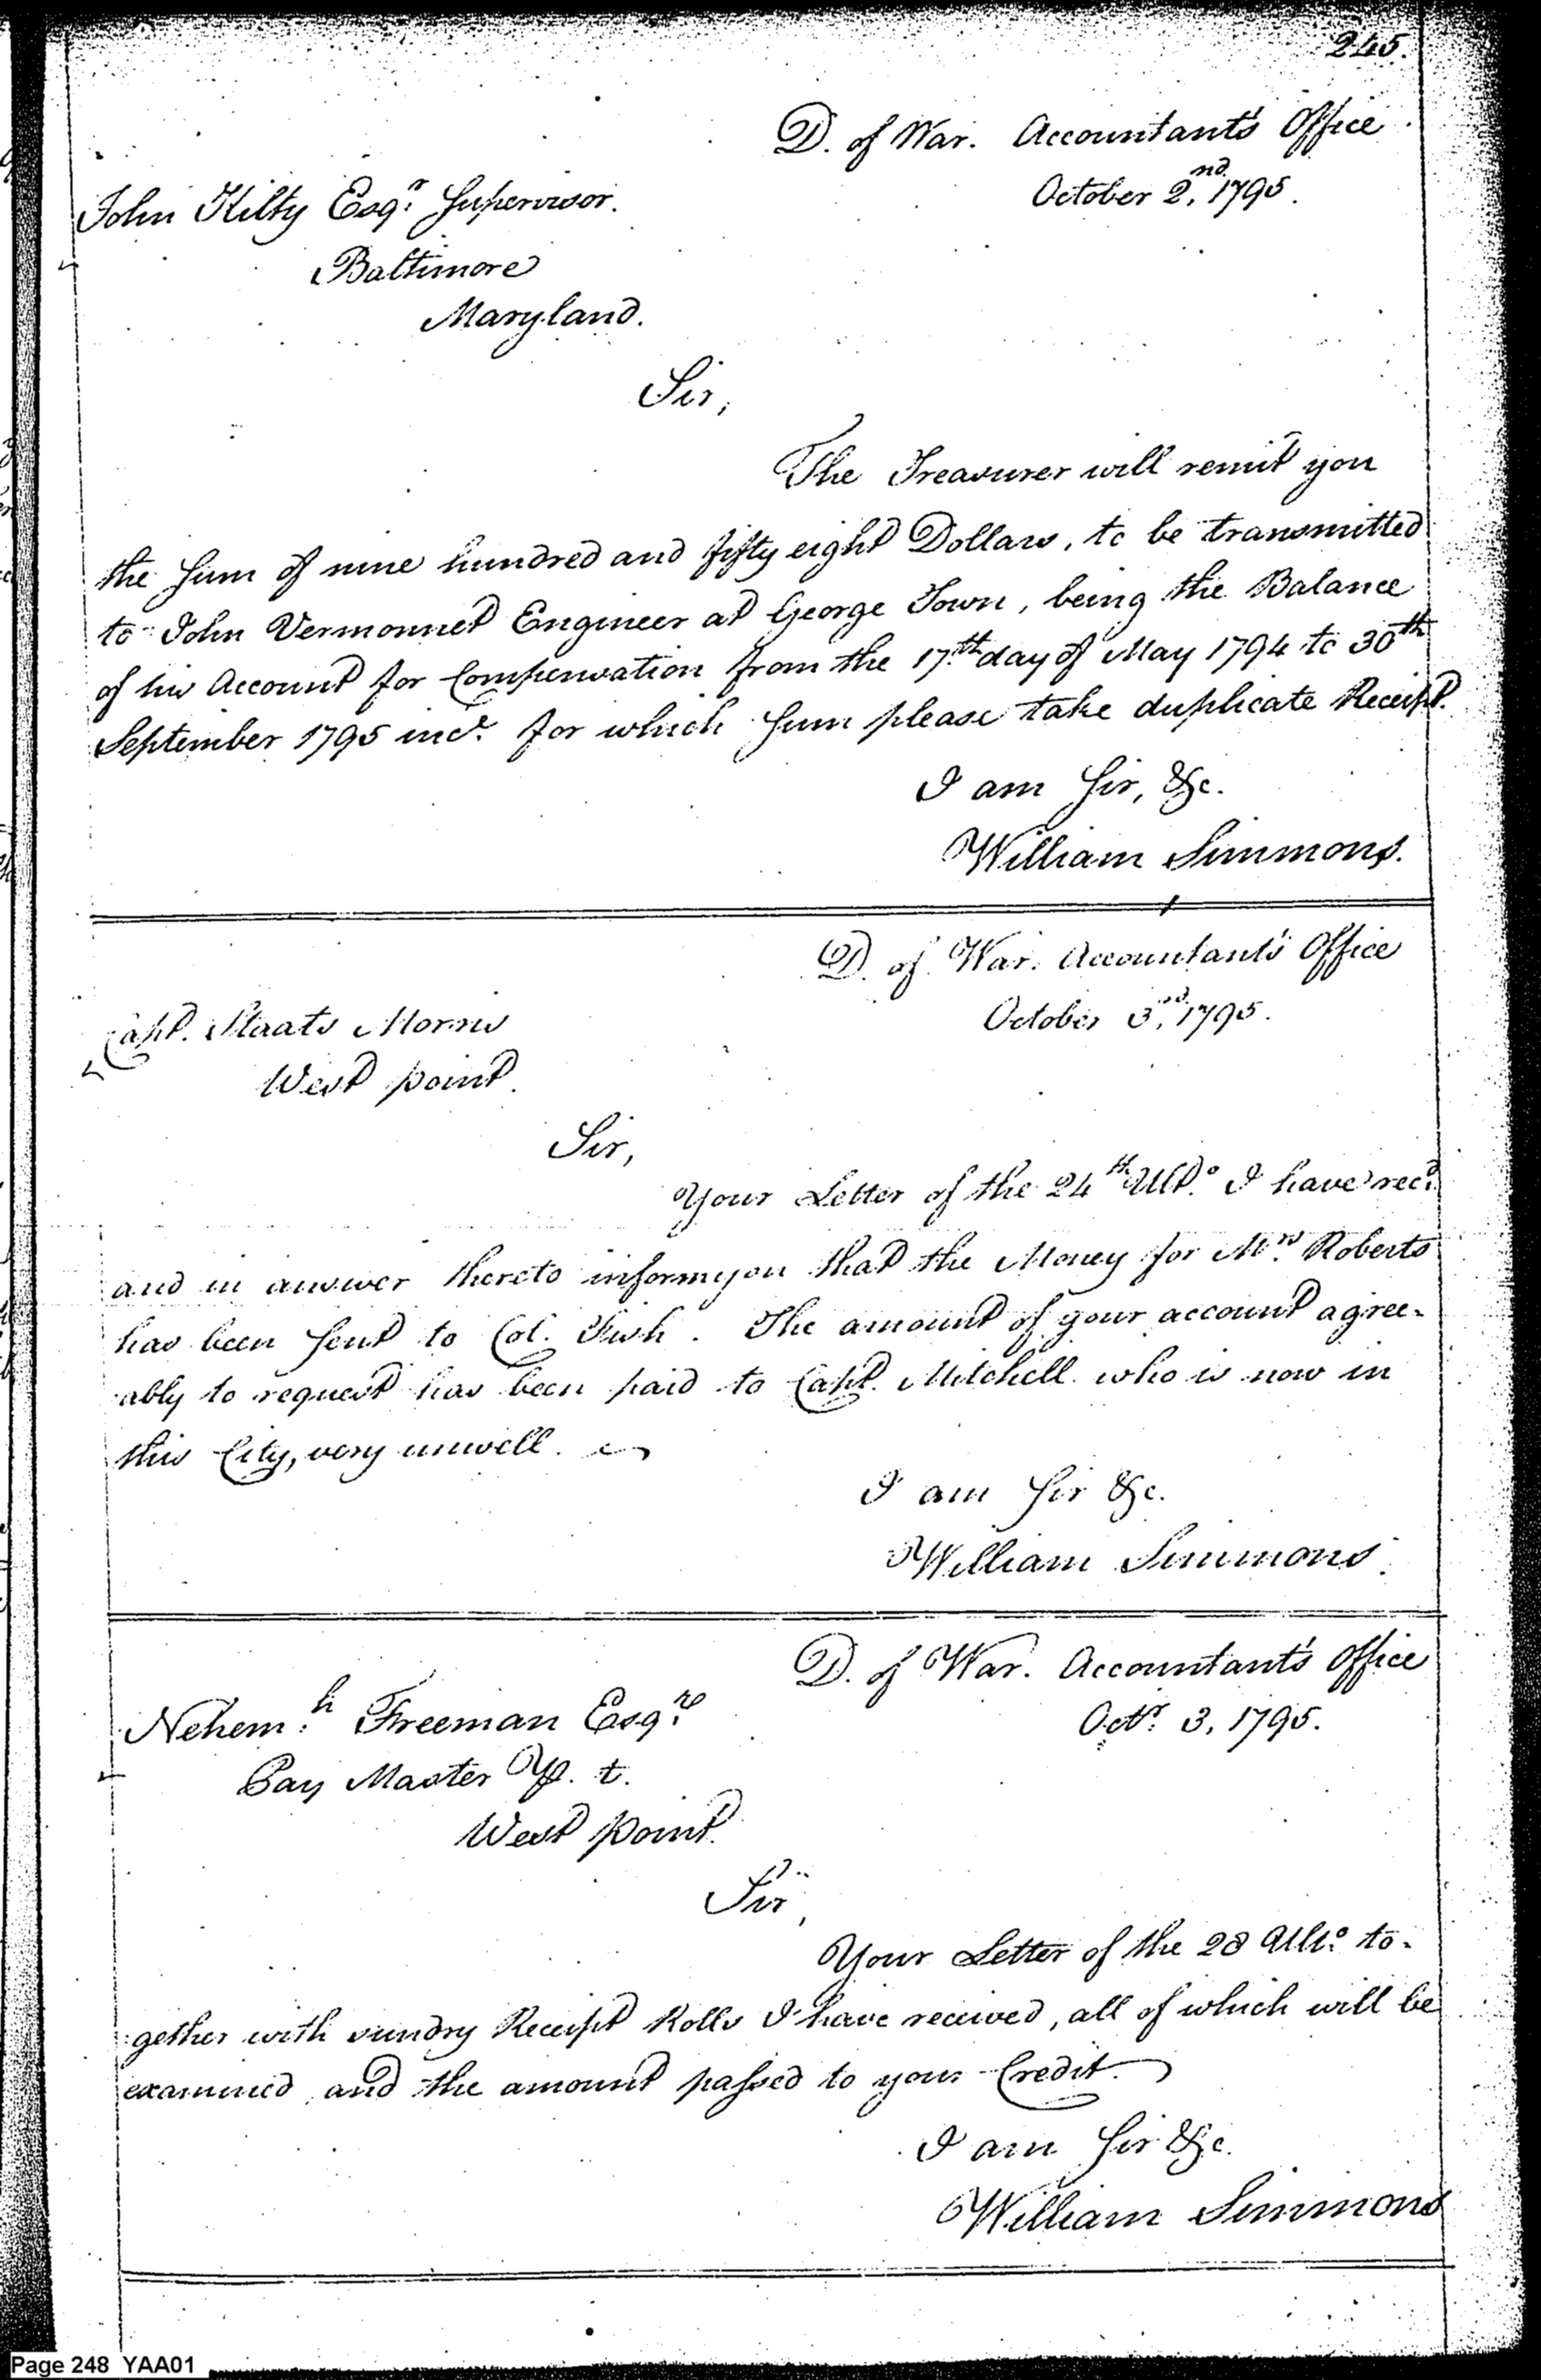 245.
D. of War. Accountant's Office
October 2nd. 1795.
John Kilty Esqr. Supervisor.
Baltimore
Maryland.
Sir,
The Treasurer will remit you
the Sum of nine hundred and fifty eight Dollars, to be transmitted
to John Vermonnet Engineer at George Town, being the Balance
of his Account for Compensation from the 17th. day of May 1794 to 30th
September 1795 incl. for which Sum please take duplicate Receipt.
I am Sir, &c.
William Simmons.
D. of War. Accountant's Office
October 3rd. 1795.
Capt. Staats Morris
West point.
Sir,
Your Letter of the 24th Ulto. I have recd.
and in answer thereto inform you that the Money for Mrs. Roberts
has been Sent to Col. Fish. The amount of your account agree-
ably to request has been paid to Capt. Mitchell who is now in
this City, very unwell.
I am Sir &c.
William Simmons.
D. of War. Accountant's Office
Octr. 3, 1795.
Nehemh. Freeman Esqre.
Pay Master P. t.
West Point.
Sir,
Your Letter of the 28 Ulto. to-
gether with sundry Receipt Rolls I have received, all of which will be
examined and the amount passed to your Credit.
I am Sir &c.
William Simmons
Page 248 YAA01